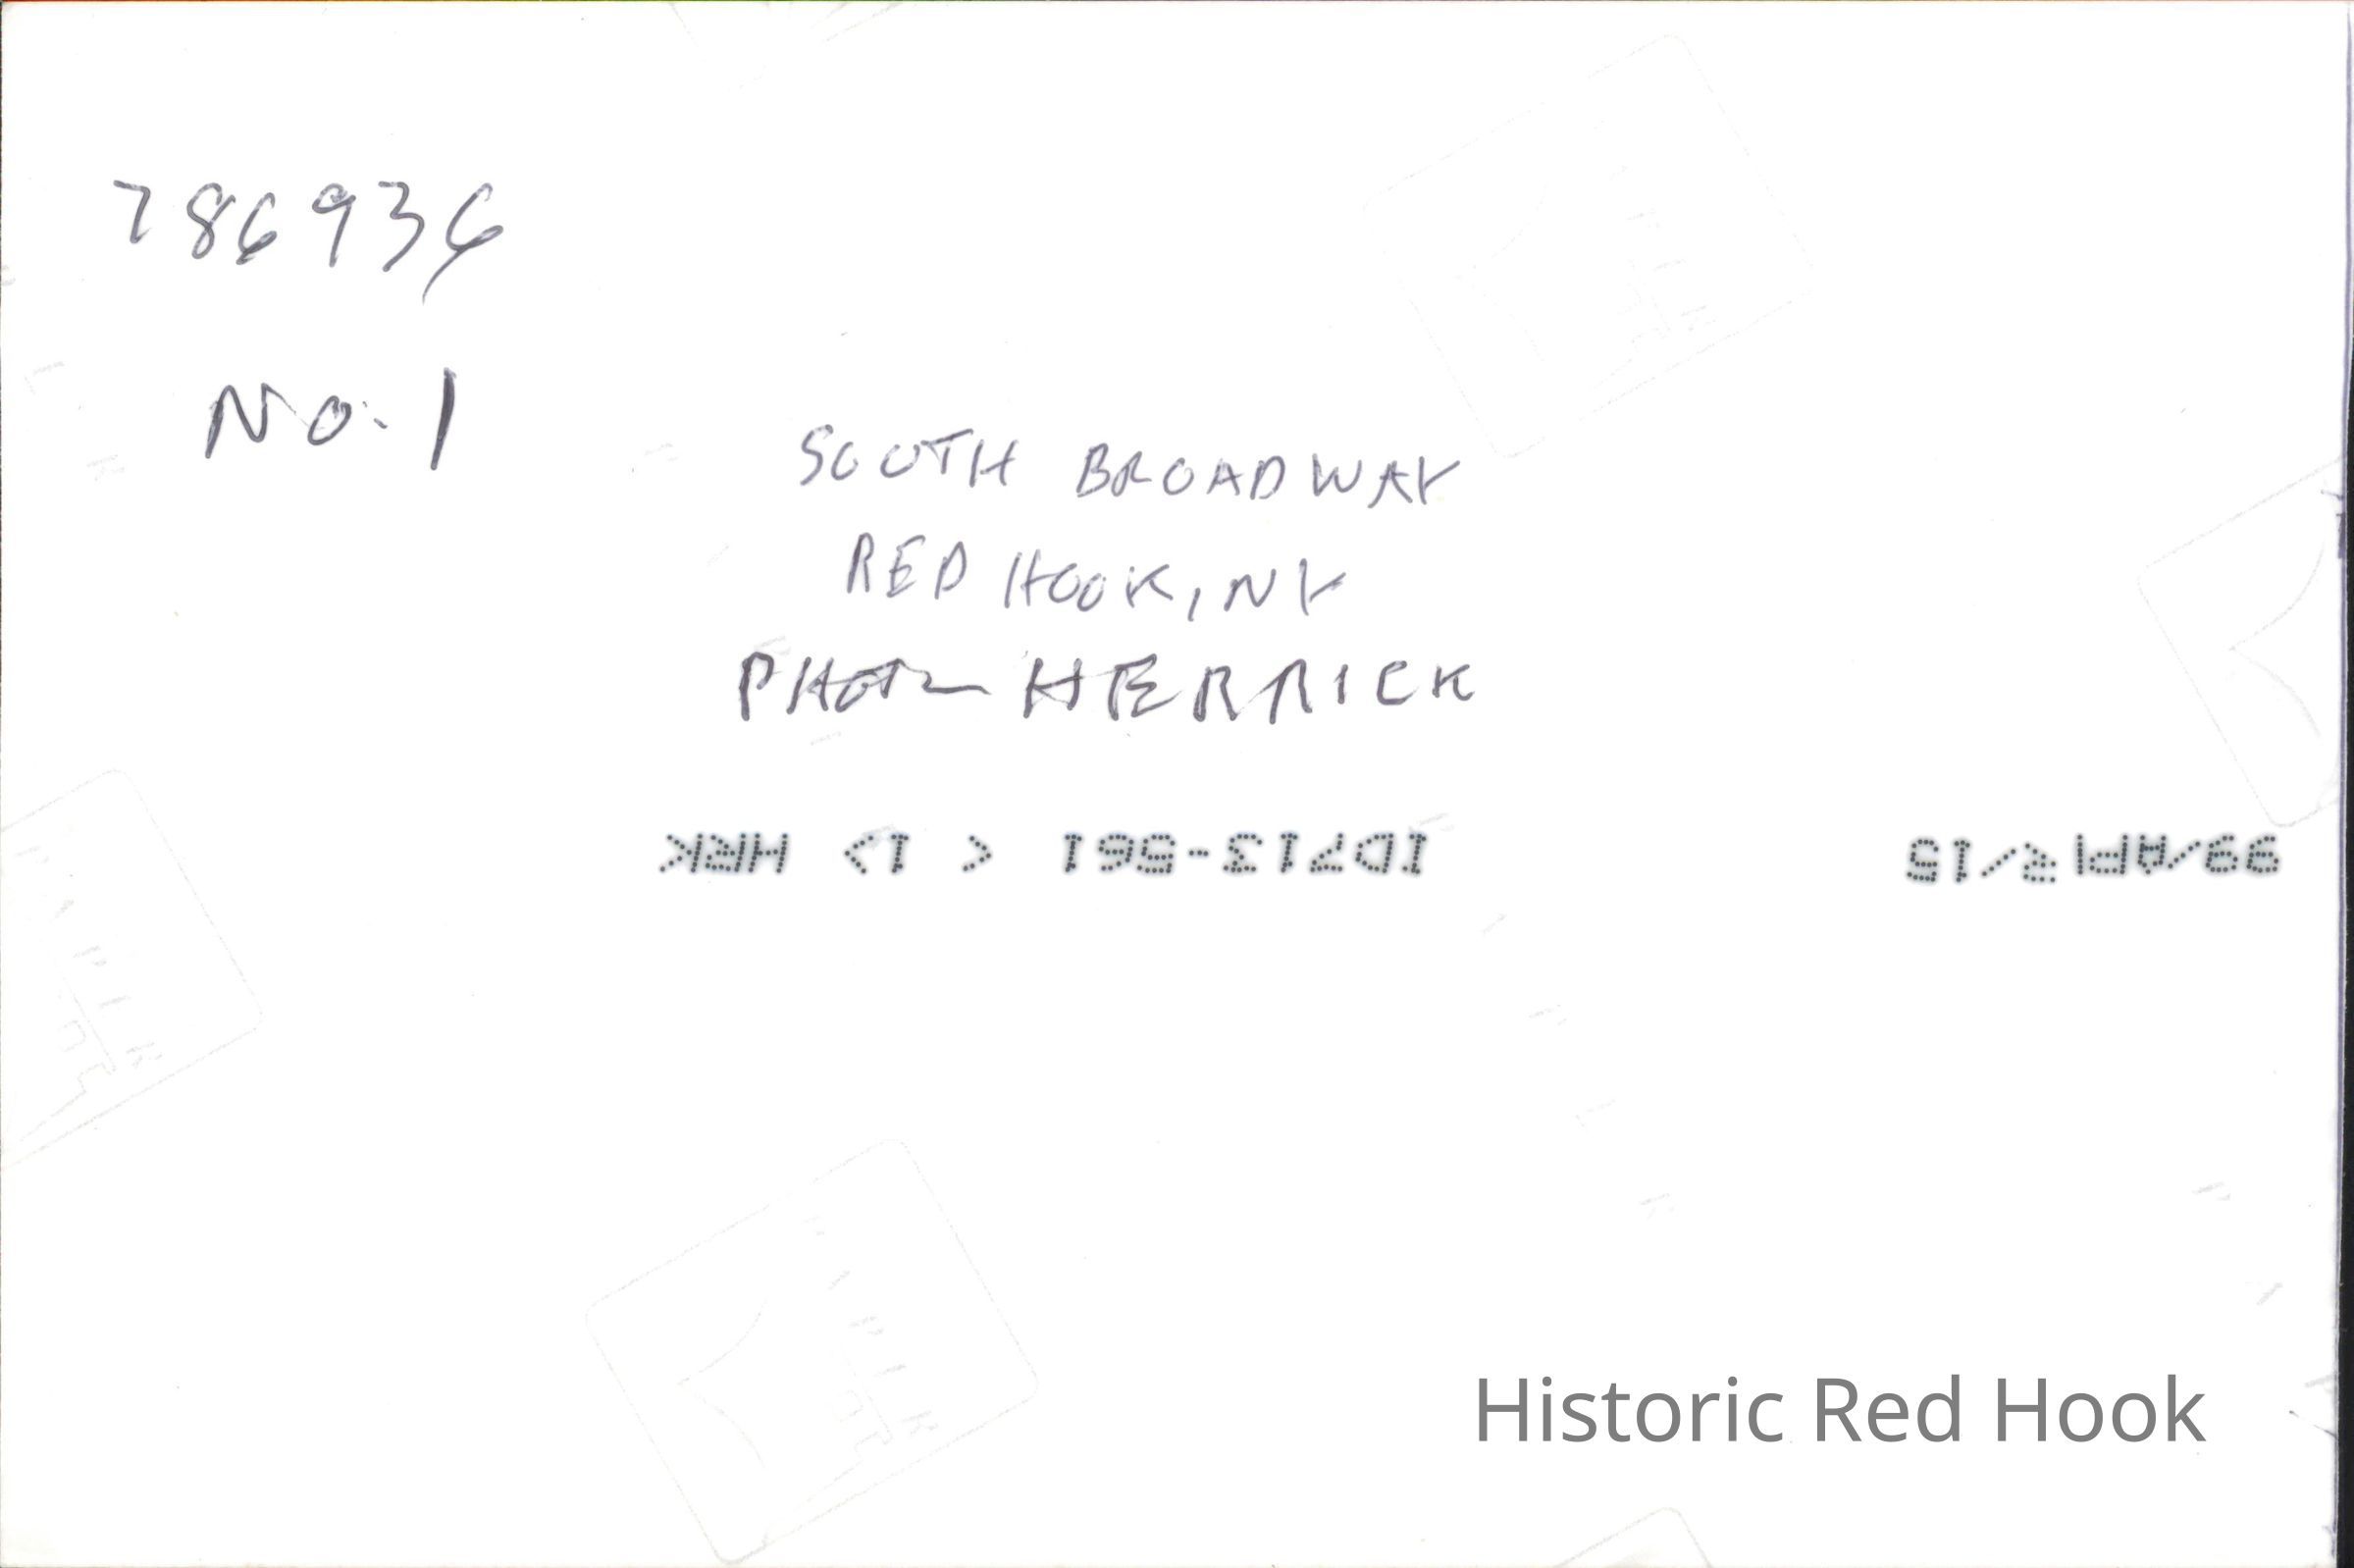 786936
No. 1
SOUTH BROADWAY
RED HOOK, NY
PHOTO HERRICK
99/APR/15 ID713-561 < 1> HRK
Historic Red Hook